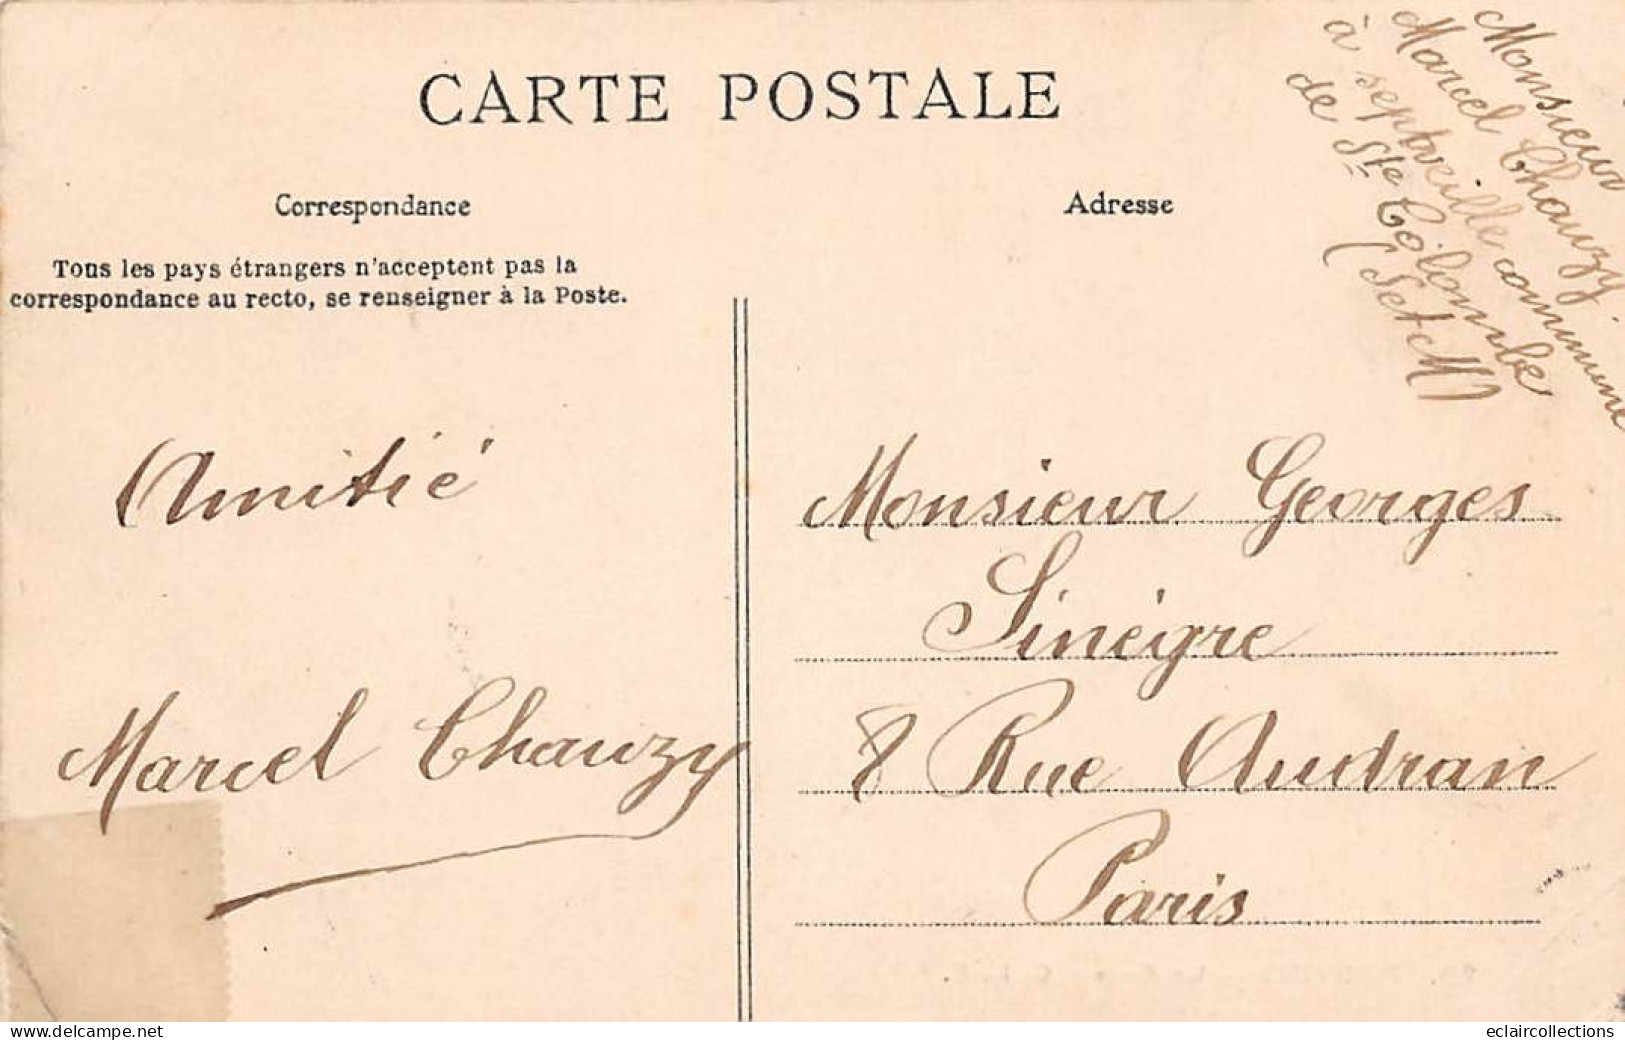 Monsieur
Marcel Chauzy
à septveille commune
de Ste Colombe
(S et M)
CARTE POSTALE
Correspondance
Tous les pays étrangers n'acceptent pas la
correspondance au recto, se renseigner à la Poste.
Amitié
Marcel Chauzy
Adresse
Monsieur Georges
Sinéigre
8 Rue Audran
Paris
delcampe.net
eclaircollections